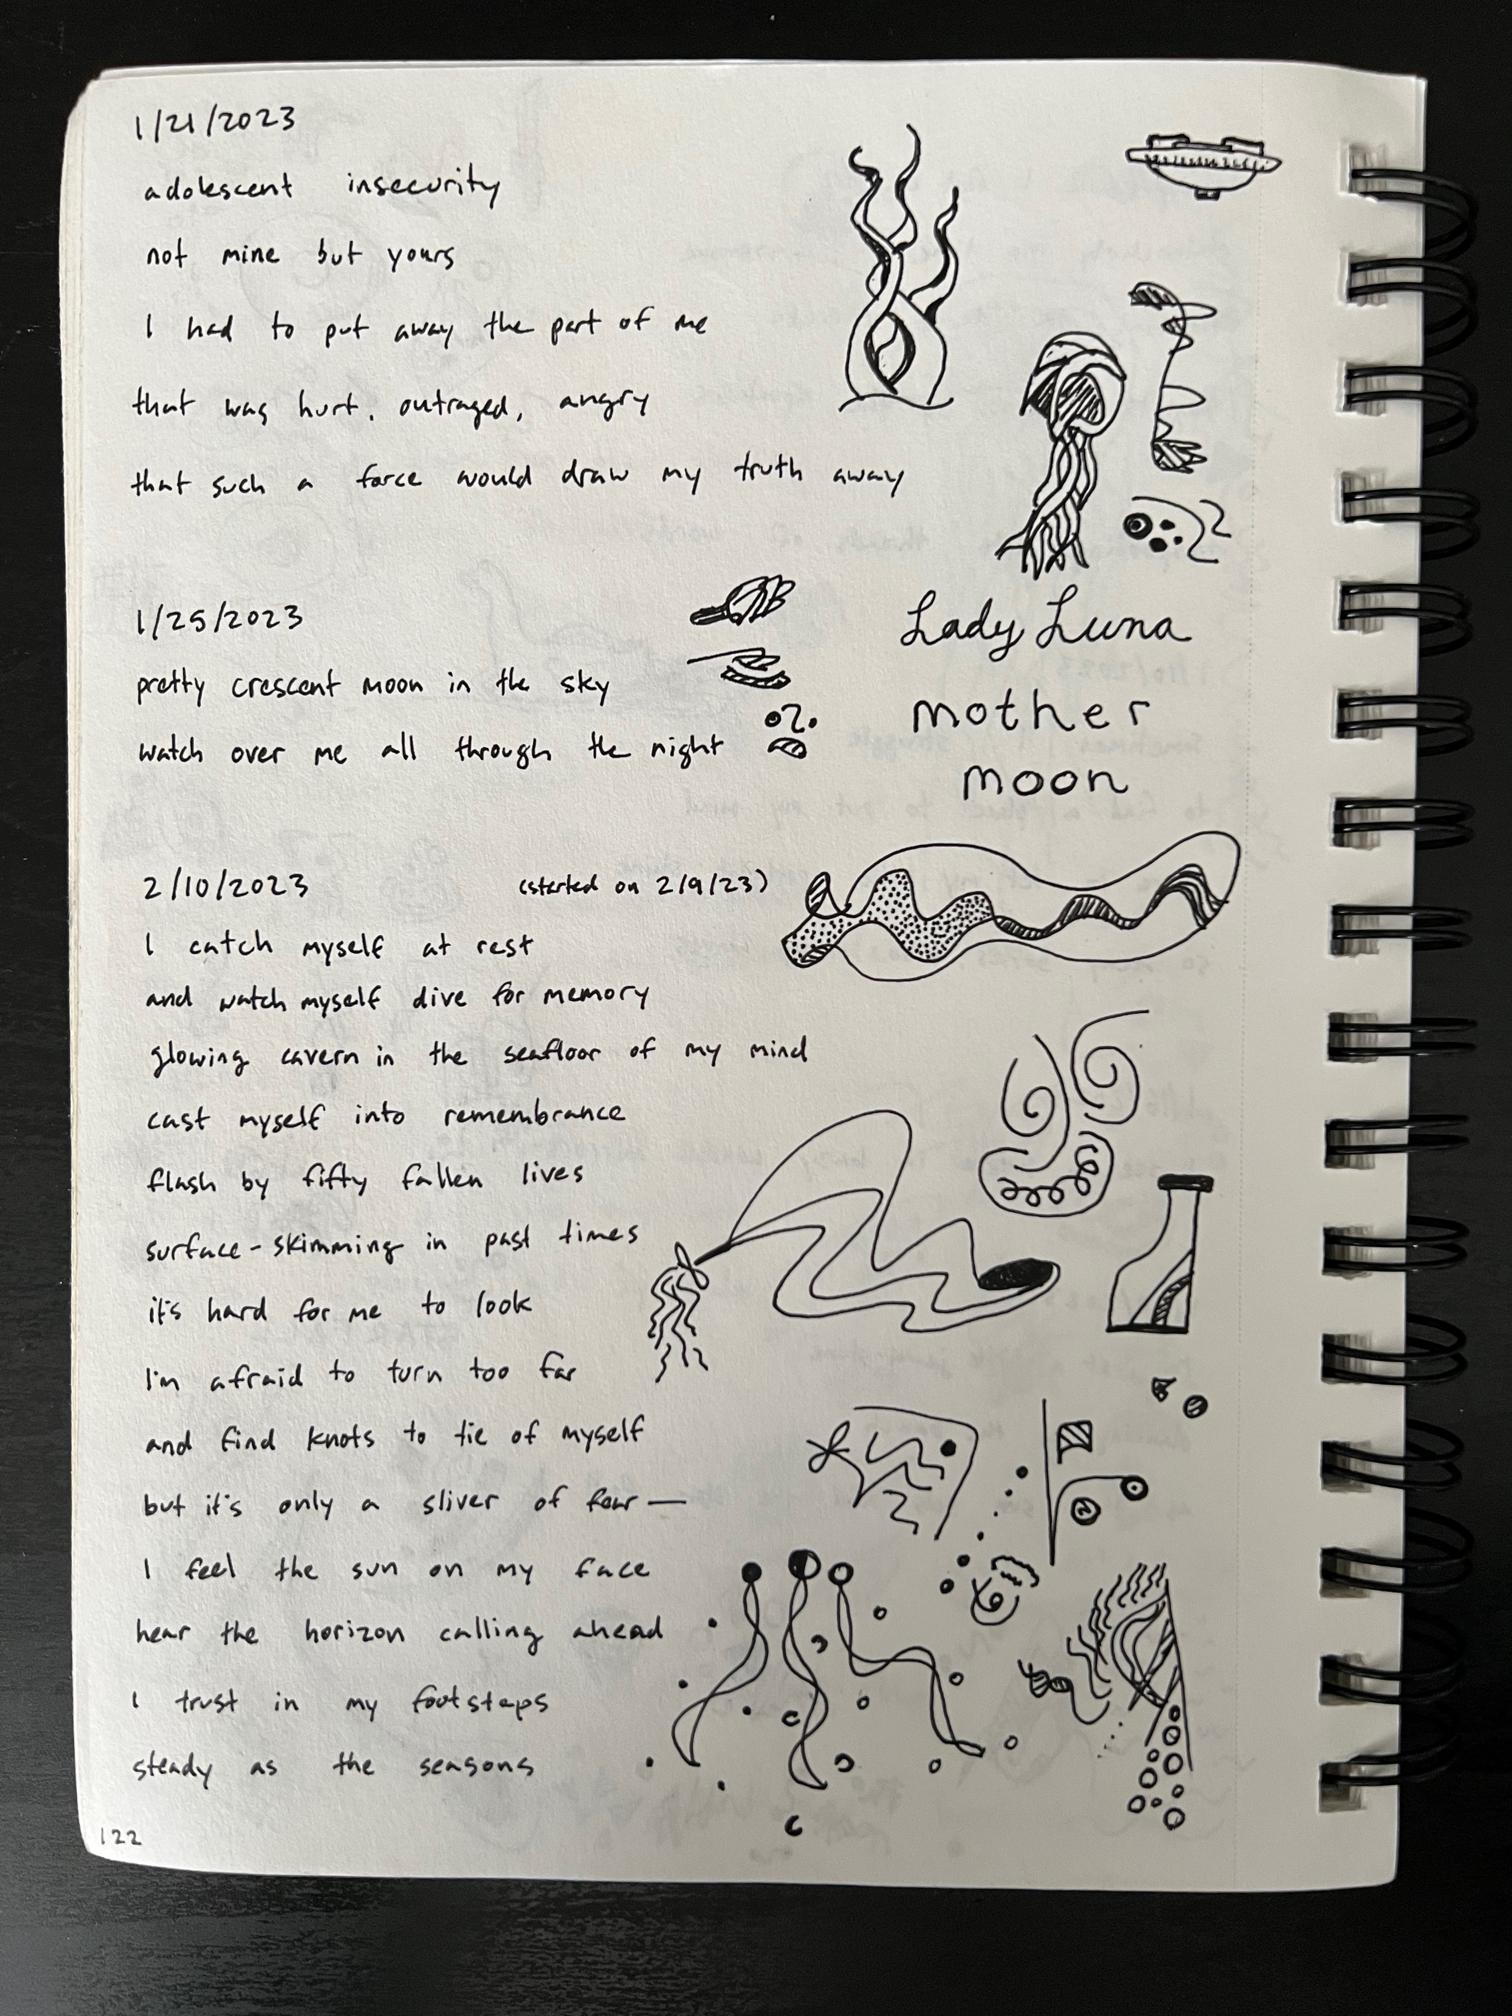 1/21/2023
adolescent insecurity
not mine but yours
I had to put away the part of me
that was hurt, outraged, angry
that such a force would draw my truth away
1/25/2023
pretty crescent moon in the sky
watch over me all through the night
Lady Luna
mother
moon
2/10/2023 (started on 2/9/23)
I catch myself at rest
and watch myself dive for memory
glowing cavern in the seafloor of my mind
cast myself into remembrance
flash by fifty fallen lives
surface-skimming in past times
it's hard for me to look
I'm afraid to turn too far
and find knots to tie of myself
but it's only a sliver of fear—
I feel the sun on my face
hear the horizon calling ahead
I trust in my footsteps
steady as the seasons
122